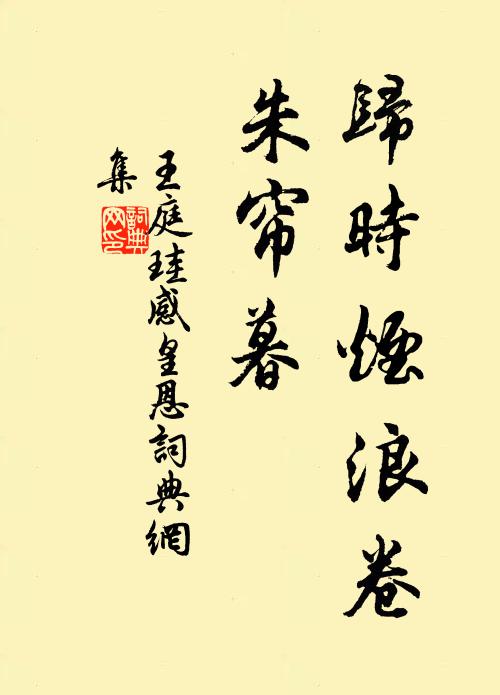 歸時煙浪卷
朱帘暮
王庭珪感皇恩詞典網
集
詞典网印